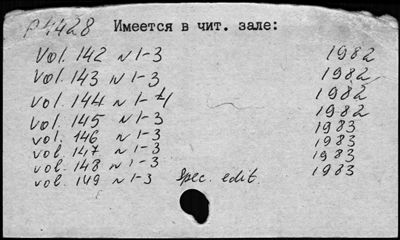 P4428 Имеется в чит. зале:
Vol. 142 N 1-3 1982
Vol. 143 N 1-3 1982
Vol. 144 N 1-4 1982
Vol. 145 N 1-3 1982
vol. 146 N 1-3 1983
vol. 147 N 1-3 1983
vol. 148 N 1-3 1983
vol. 149 N 1-3 Spec. edit. 1983